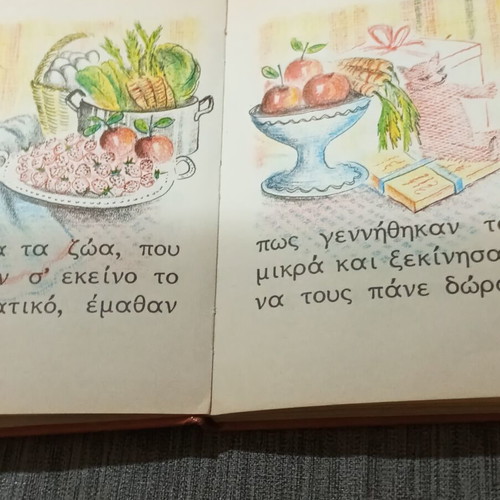 τα ζώα, που
σ' εκείνο το
έμαθαν
πως γεννήθηκαν
μικρά και ξεκίνησα
να τους πάνε δώρα